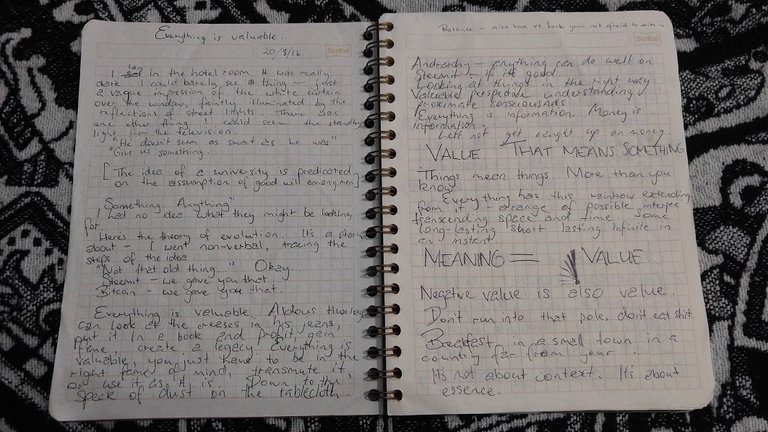 Everything is valuable.
20/8/16.
Scribd
I lay in the hotel room. It was really
dark - I could barely see a thing - just
a vague impression of the white curtain
over the window, faintly illuminated by the
reflections of street lights. There was
one other thing I could see - the standby
light from the television.
"He doesn't seem as smart as he was"
"Give us something."
[The idea of a university is predicated
on the assumption of good will among men]
"Something. Anything"
I had no idea what they might be looking
for.
"Here's the theory of evolution. It's a story
about - I went non-verbal, tracing the
steps of the idea
"Not that old thing..." Okay...
Steemit - we gave you that
Bitcoin - we gave you that.
Everything is valuable. Aldous Huxley
can look at the creases in his jeans,
put it in a book and profit, gain
fame, create a legacy. Everything is
valuable, you just have to be in the
right frame of mind, transmute it,
or use it as it is. Down to the
speck of dust on the tablecloth.
nice not afraid to write in
Andrarchy - anything can do well on
Steemit - if it's good.
Looking at things in the right way
Valuable perspective, understanding,
proximate consciousness
Everything is information. Money is
information.
Let's not get caught up on money.
VALUE. THAT MEANS SOMETHING
Things mean things. More than you
know.
Everything has this rainbow extending
from it - a range of possible
transcending space and time. Some
long-lasting short lasting infinite in
an instant.
MEANING = VALUE
Negative value is also value.
Don't run into that pole, don't eat shit.
Breakfast in a small town in a
country far from your
It's not about context. It's about
essence.